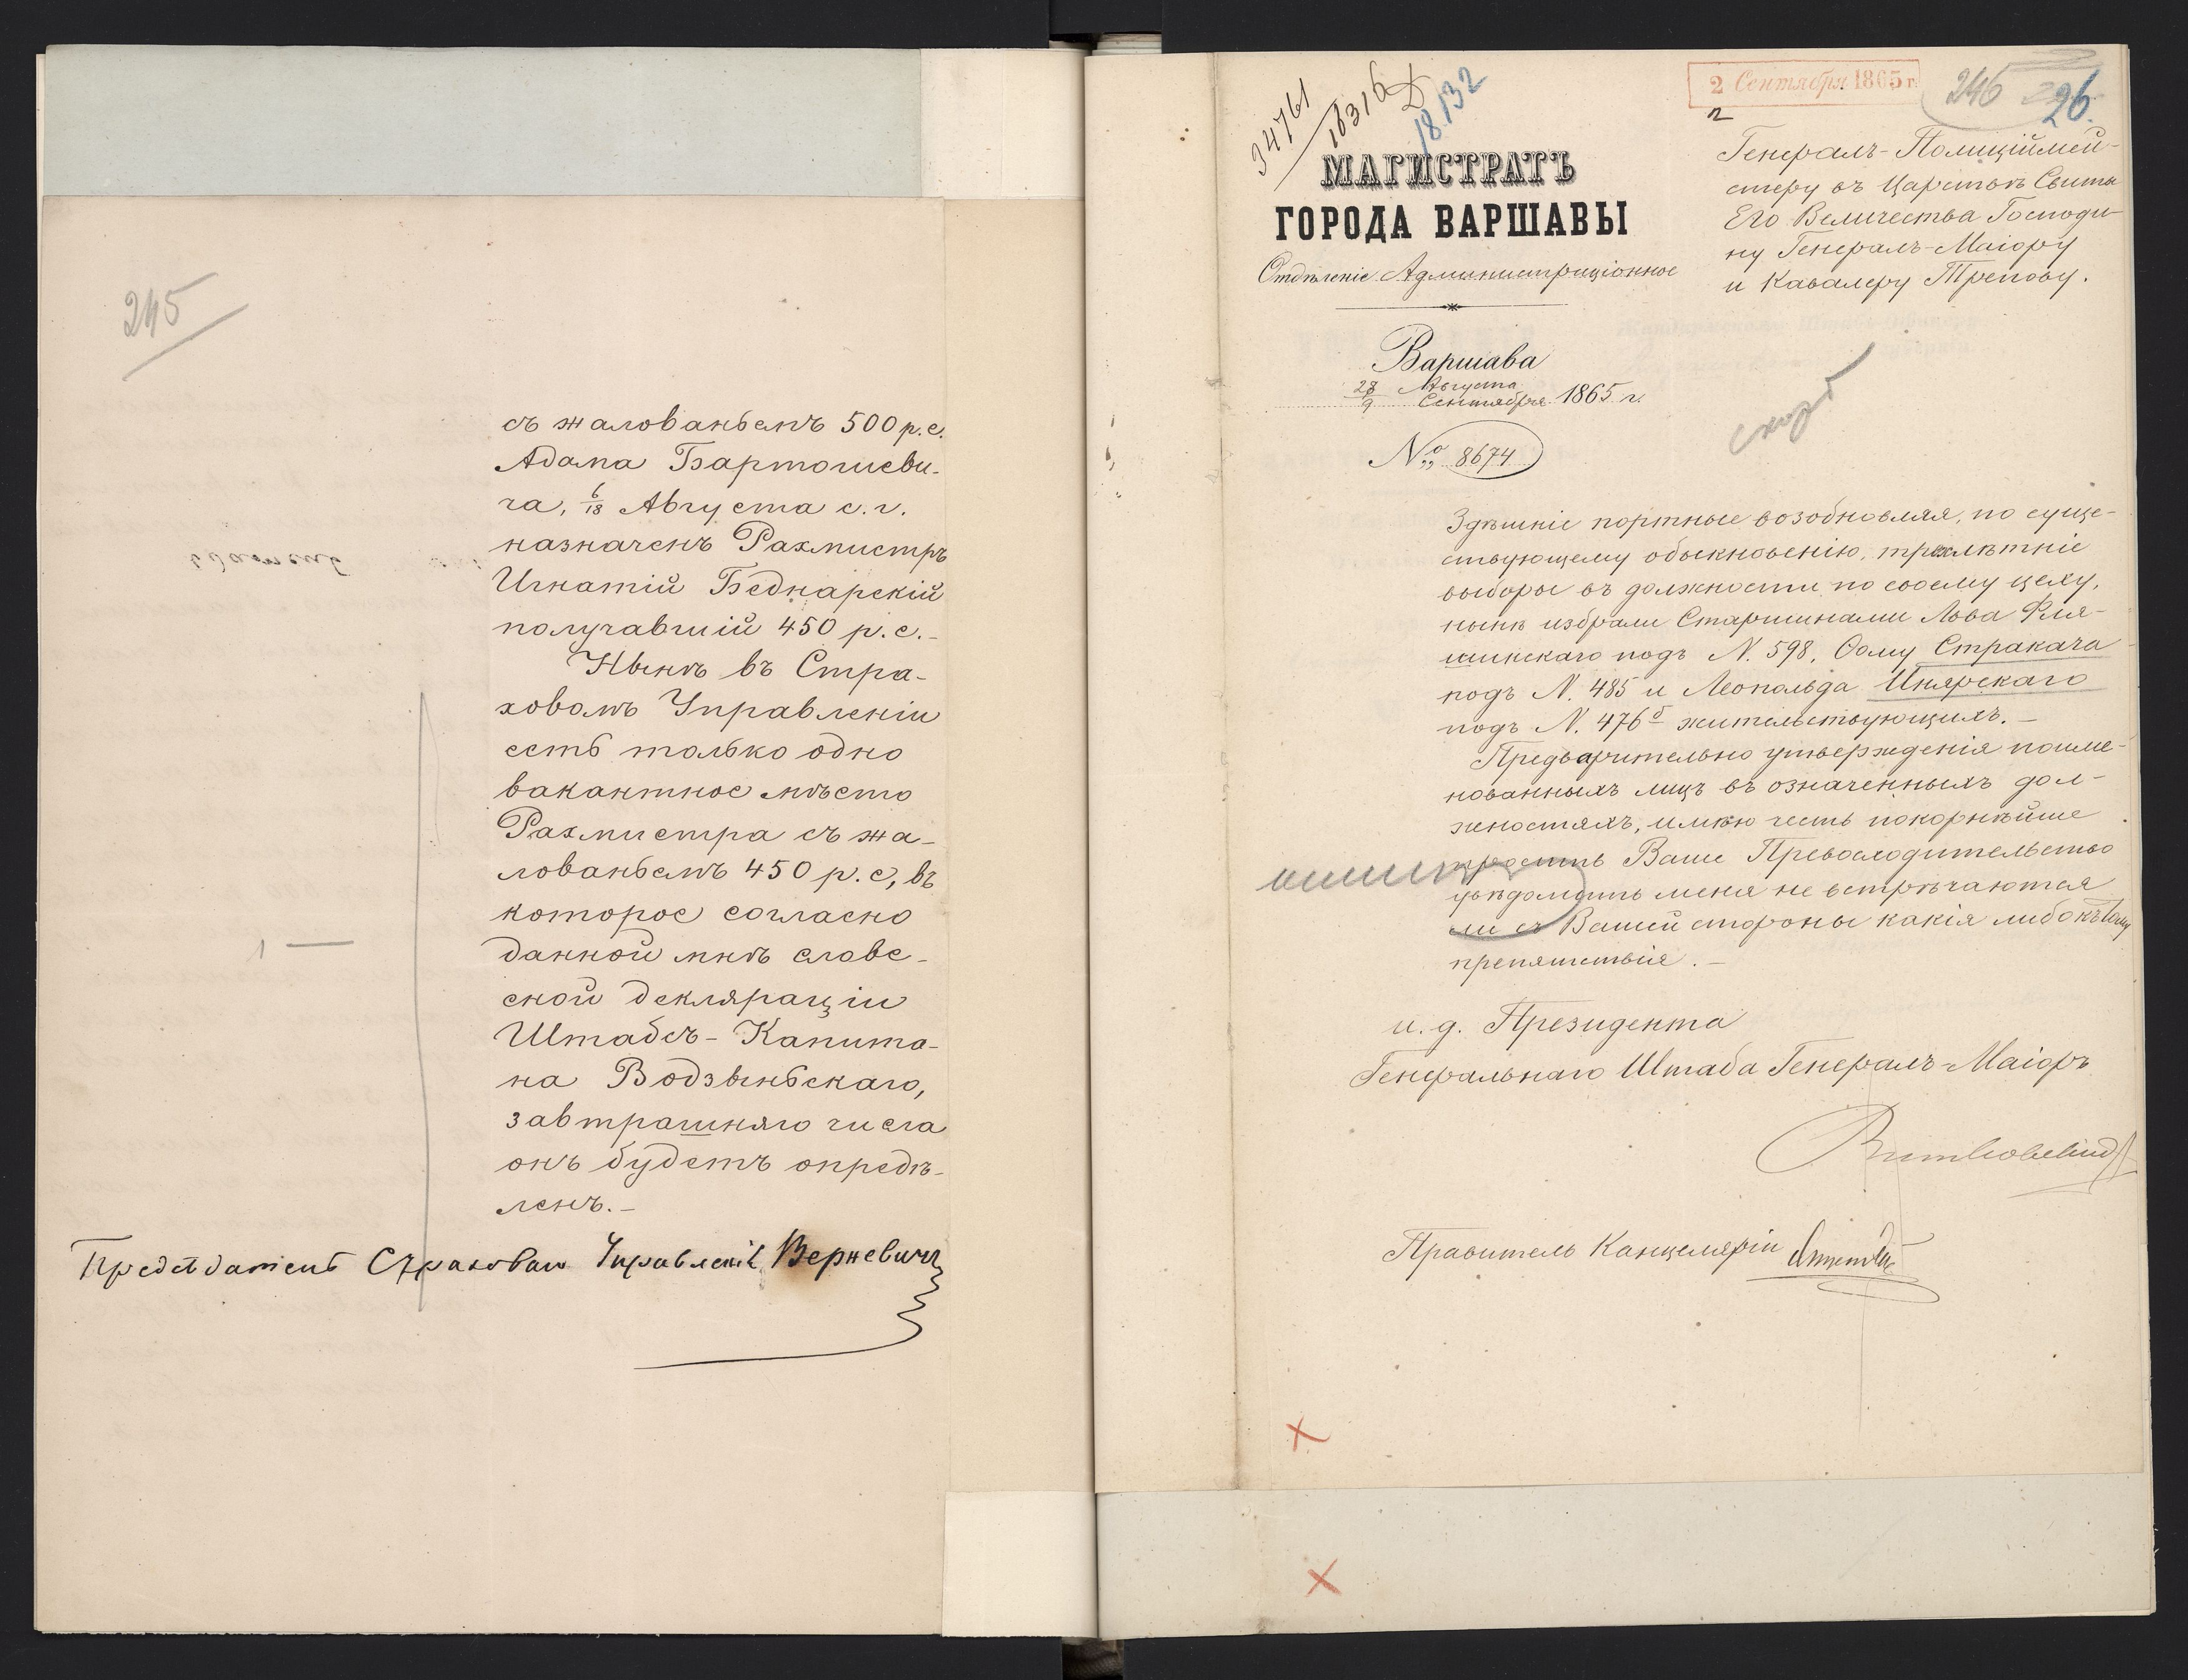 245
съ жалованьемъ 500 р. с.
Адама Бартошеви-
ча, 6/18 Августа с. г.
назначенъ Рахмистръ
Игнатій Беднарскій
получавшій 450 р. с.-
Нынѣ въ Стра-
ховомъ Управленіи
есть только одно
вакантное мѣсто
Рахмистра съ жа-
лованьемъ 450 р. с, въ
которое согласно
данной мнѣ слове-
сной декляраціи
Штабсъ-Капита-
на Водзыньскаго,
завтрашняго числа
онъ будетъ опредѣ-
ленъ.-
Предсѣдатель Страховаго Управленія Верневичъ
34761
18316
18132
2 Сентября 1865 г.
246
26.
МАГИСТРАТЪ
ГОРОДА ВАРШАВЫ
Отдѣленіе Администраціонное
Варшава
28/9 Августа/Сентября 1865 г.
No 8674
Генералъ-Полиціймей-
стеру въ Царствѣ Свиты
Его Величества Господи-
ну Генералъ-Маіору
и Кавалеру Трепову.
Здѣшніе портные возобновляя, по суще-
ствующему обыкновенію, трехлѣтніе
выборы въ должности по своему цеху,
нынѣ избрали Старшинами Льва Фля-
шинскаго подъ N. 598, Ѳому Стракача
подъ N. 485 и Леопольда Инярскаго
подъ N. 476б жительствующихъ.-
Предварительно утвержденія поиме-
нованныхъ лицъ въ означенныхъ дол-
жностяхъ, имѣю честь покорнѣйше
просить Ваше Превосходительство
увѣдомить меня не встрѣчаются
ли съ Вашей стороны какія либо къ тому
препятствія.-
и. д. Президента
Генеральнаго Штаба Генералъ-Маіоръ
Правитель Канцеляріи